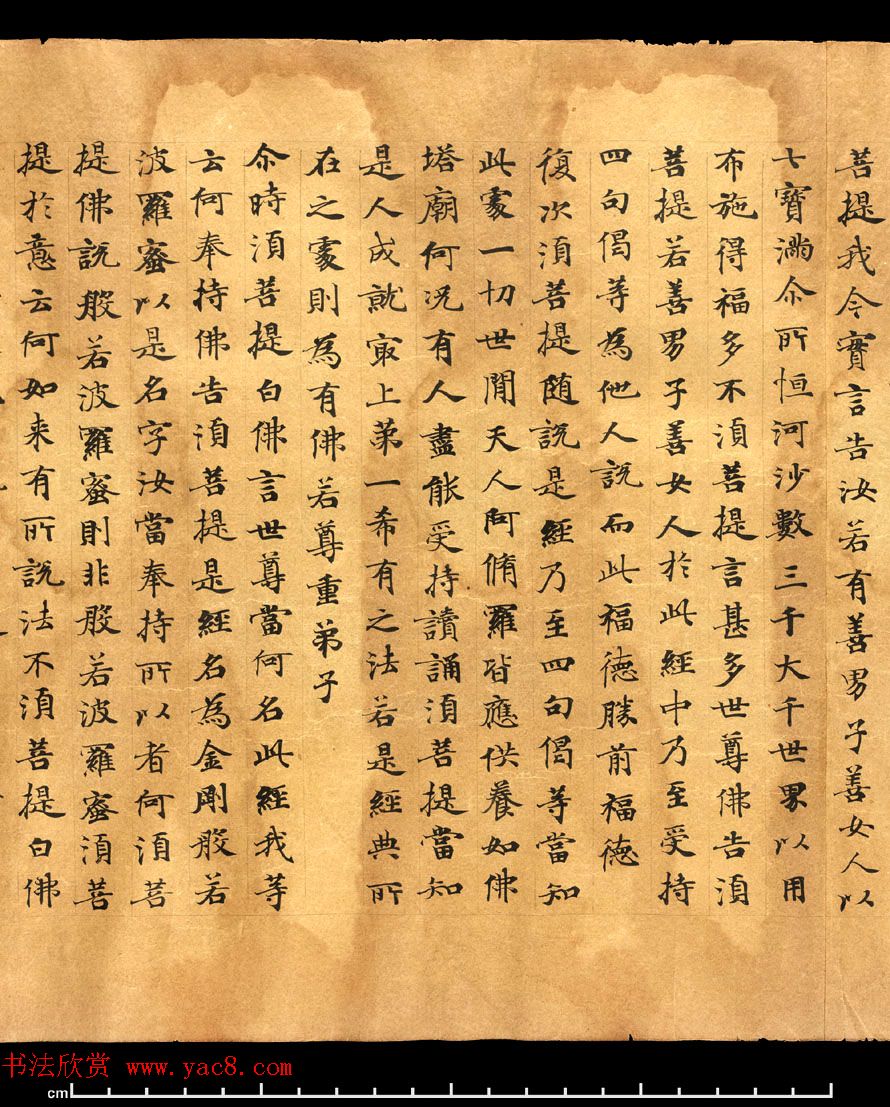 菩提我今實言告汝若有善男子善女人以
七寶滿尒所恒河沙數三千大千世界以用
布施得福多不湏菩提言甚多世尊佛告湏
菩提若善男子善女人於此經中乃至受持
四句偈等為他人說而此福德勝前福德
復次湏菩提随說是經乃至四句偈等當知
此處一切世間天人阿脩羅皆應供養如佛
塔廟何况有人盡能受持讀誦湏菩提當知
是人成就冣上苐一希有之法若是經典所
在之處則為有佛若尊重弟子
尒時湏菩提白佛言世尊當何名此經我等
云何奉持佛告湏菩提是經名為金剛般若
波羅蜜以是名字汝當奉持所以者何湏菩
提佛說般若波羅蜜則非般若波羅蜜湏菩
提於意云何如来有所說法不湏菩提白佛
书法欣赏 www.yac8.com
cm